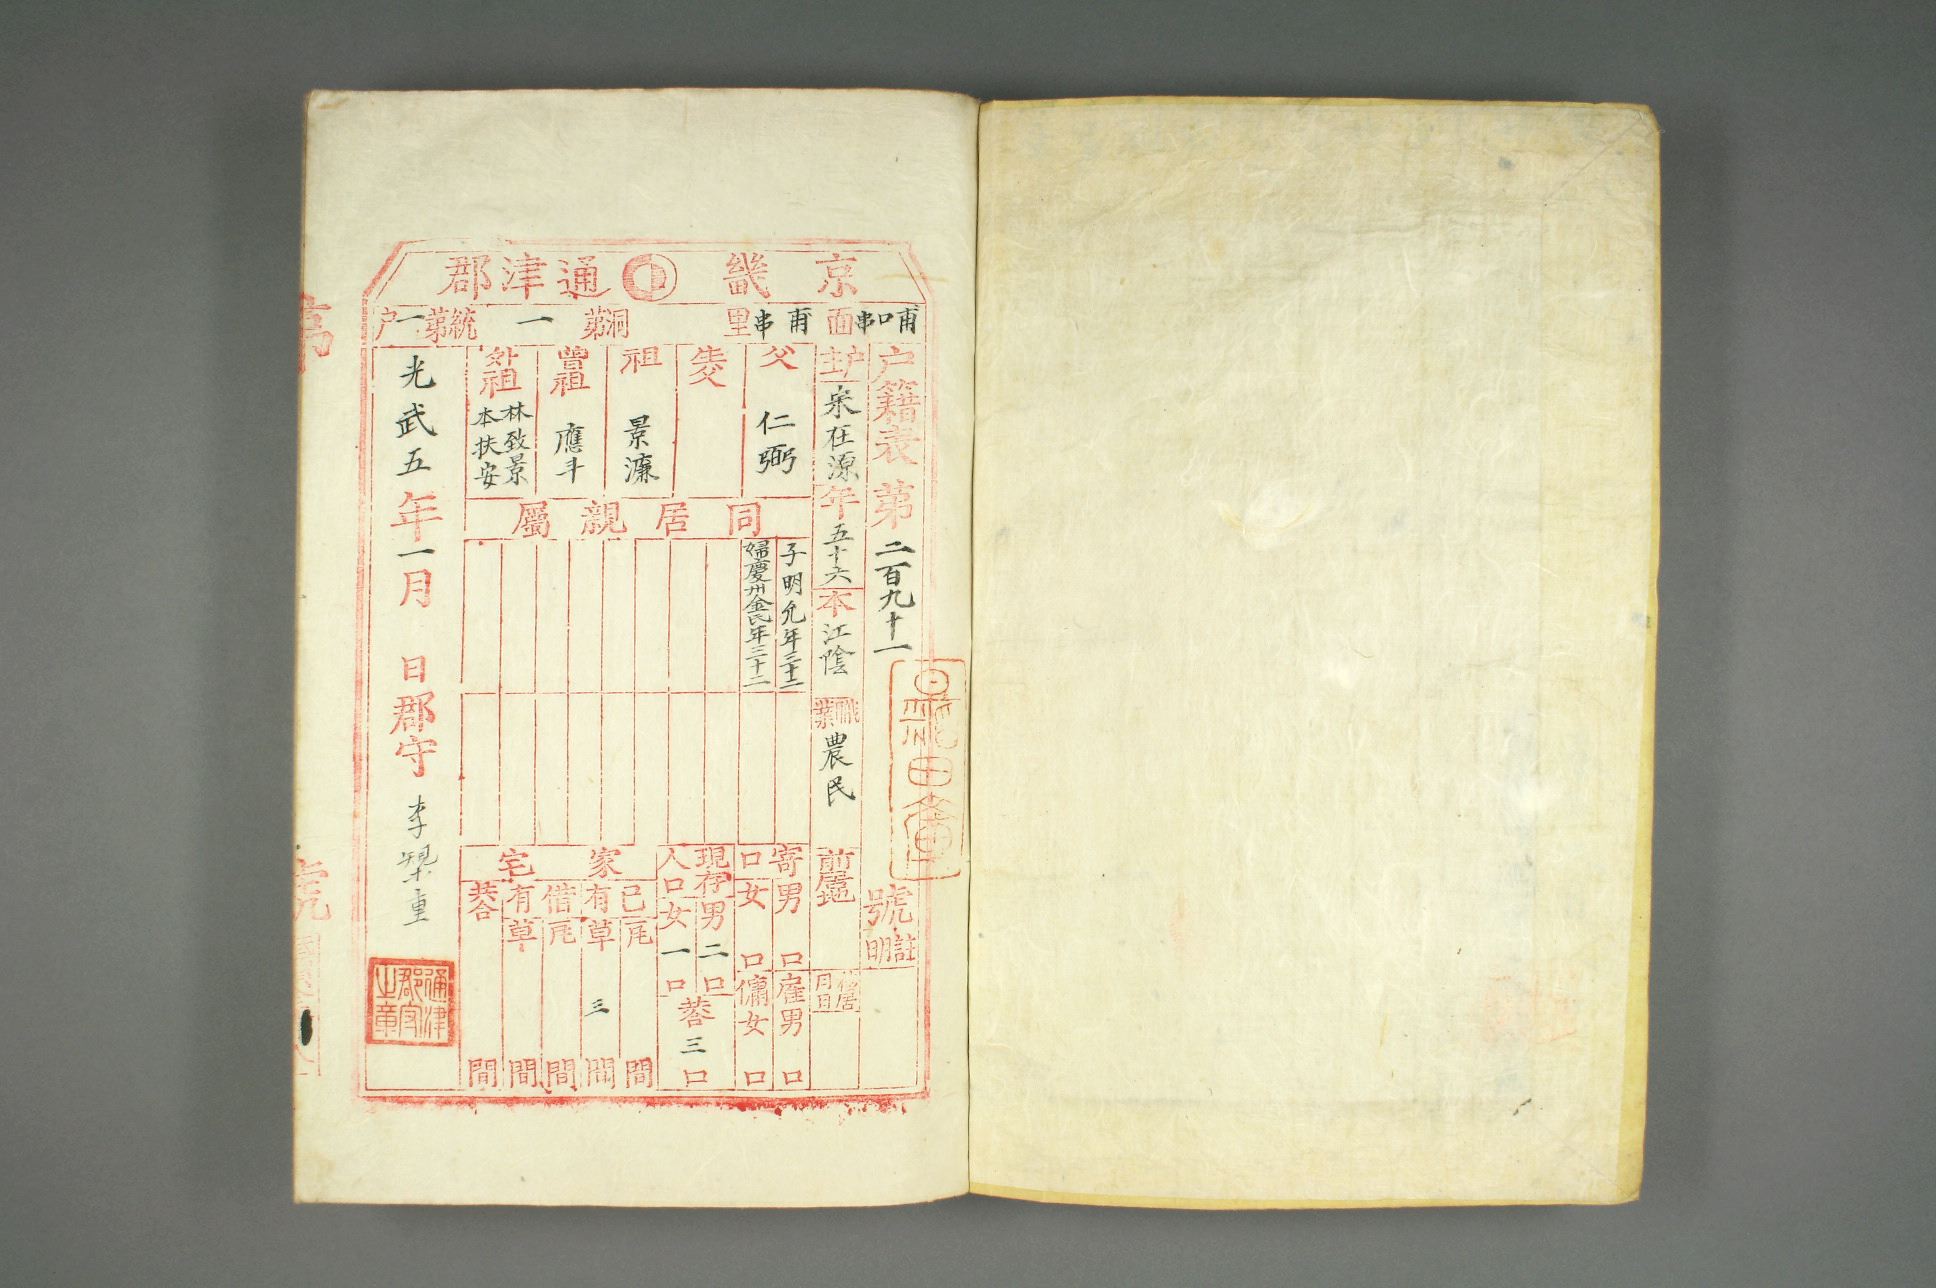 京畿通津郡
哺口串面甫串里洞第一統第一户
户籍表第二百九十一號
註明
户主宋在源年五十六本江陰職業農民
前居地
移居月日
父仁弼
生父
祖景濂
曾祖應斗
外祖林致景本扶安
同居親屬
子明允年三十二
婦慶州金氏年三十二
寄口
男口
女口
雇男口
傭女口
現存人口
男二口
女一口
共合三口
家宅
已有
瓦間
草三間
借有
瓦間
草間
共合間
光武五年一月日郡守李
通津郡守之章